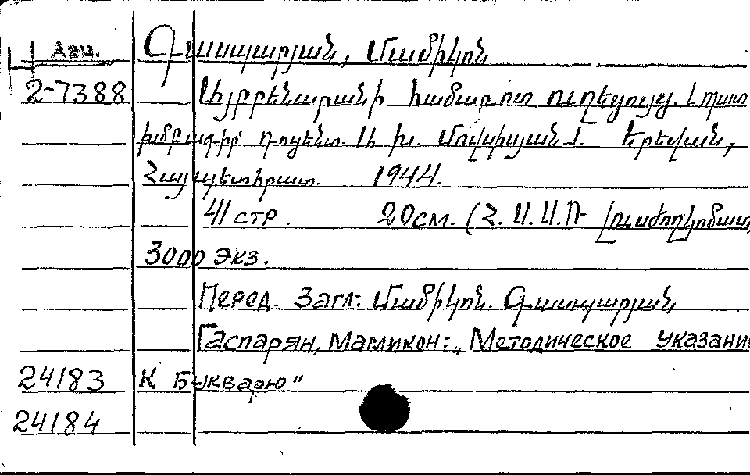 Азц. Գասպարյան, Մամիկոն
2-7388 Այբբենարանի համառոտ ուղեցույց.
խմբագիր դոցենտ Ա. Խ. Մովսիսյան. Երեվան,
Հայպետհրատ. 1944.
41 стр. 20см. (Հ.Ս.Ս.Ռ Լուսժողկոմատ
3000 экз.
Перед Загл: Մամիկոն Գասպարյան
Гаспарян, Мамикон: „Методическое указание
24183 К Букварю"
24184